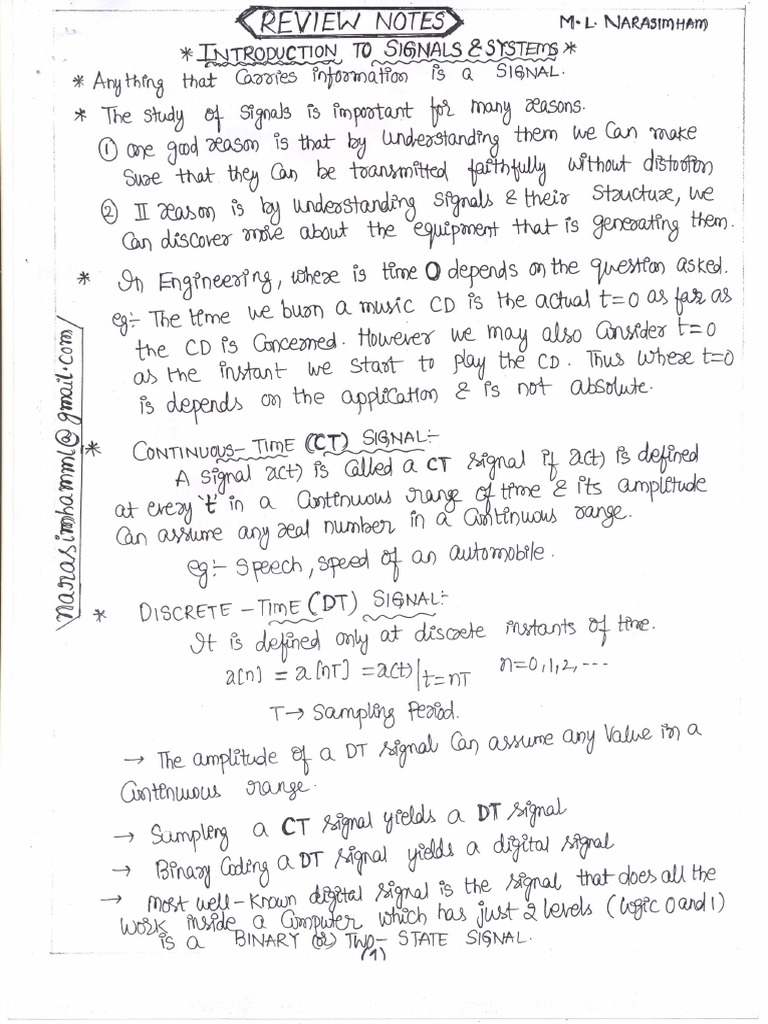 REVIEW NOTES
M. L. NARASIMHAM
* INTRODUCTION TO SIGNALS & SYSTEMS *
* Anything that Carries information is a SIGNAL.
* The study of signals is important for many reasons.
① one good reason is that by understanding them we can make
sure that they can be transmitted faithfully without distortion
② II reason is by understanding signals & their structure, we
can discover more about the equipment that is generating them.
* In Engineering, where is time 0 depends on the question asked.
eg:- The time we burn a music CD is the actual t=0 as far as
the CD is concerned. However we may also consider t=0
as the instant we start to play the CD. Thus where t=0
is depends on the application & is not absolute.
narasimhamml@gmail.com
* CONTINUOUS-TIME (CT) SIGNAL:-
A signal x(t) is called a CT signal if x(t) is defined
at every 't' in a continuous range of time & its amplitude
can assume any real number in a continuous range.
eg:- speech, speed of an automobile.
* DISCRETE-TIME (DT) SIGNAL:-
It is defined only at discrete instants of time.
x[n] = x[nT] = x(t)|t=nT n=0,1,2,---
T→ Sampling Period.
→ The amplitude of a DT signal can assume any value in a
continuous range.
→ Sampling a CT signal yields a DT signal
→ Binary Coding a DT signal yields a digital signal
→ Most well-known digital signal is the signal that does all the
work inside a computer which has just 2 levels (logic 0 and 1)
is a BINARY (or) TWO-STATE SIGNAL.
(1)